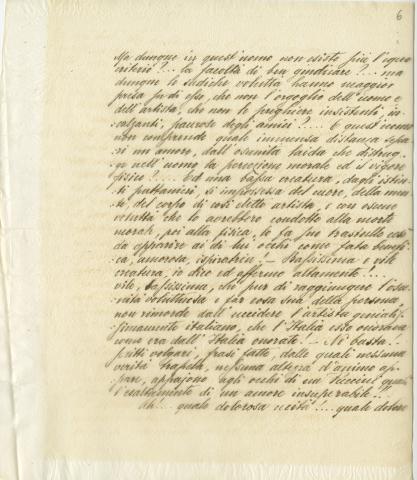 6
Ma dunque in quest'uomo non esiste più l'equo
criterio?... la facoltà di ben giudicare?... ma
dunque le sadiche voluttà hanno maggior
presa su di esso, che non l'orgoglio dell'uomo e
dell'artista, che non le preghiere insistenti, in-
calzanti, paurose degli amici!?.... E quest'uomo
non comprende quale immensa distanza sepa-
ri un amore, dall'oscenità laida che distrug-
ge nell'uomo la percezione morale ed il vigore
fisico?.... Ed una bassa creatura, dagli istin-
ti puttaneschi, si impossessa del cuore, della men-
te, del corpo di così eletto artista, e con oscene
voluttà che lo avrebbero condotto alla morte
morale, poi alla fisica, lo fa suo trastullo
da apparire ai di lui occhi come fata benefi-
ca, amorosa, ispiratrice! — Bassissima e vile
creatura, io dico ed affermo altamente!...
vile, bassissima, chi pur di raggiungere l'osce-
nità voluttuosa e far cosa sua della persona,
non rimorde dall'uccidere l'artista genialis-
simamente italiano, che l'Italia
come era dall'Italia onorato! — Nè basta!—
fatti volgari, frasi fatte, dalle quali nessuna
verità trapela, nessuna altezza d'animo ap-
pare, appajono agli occhi di un Puccini quali
l'esaltamento di un amore insuperabile!..
Ah!... quale dolorosa cecità!.... quale dolore